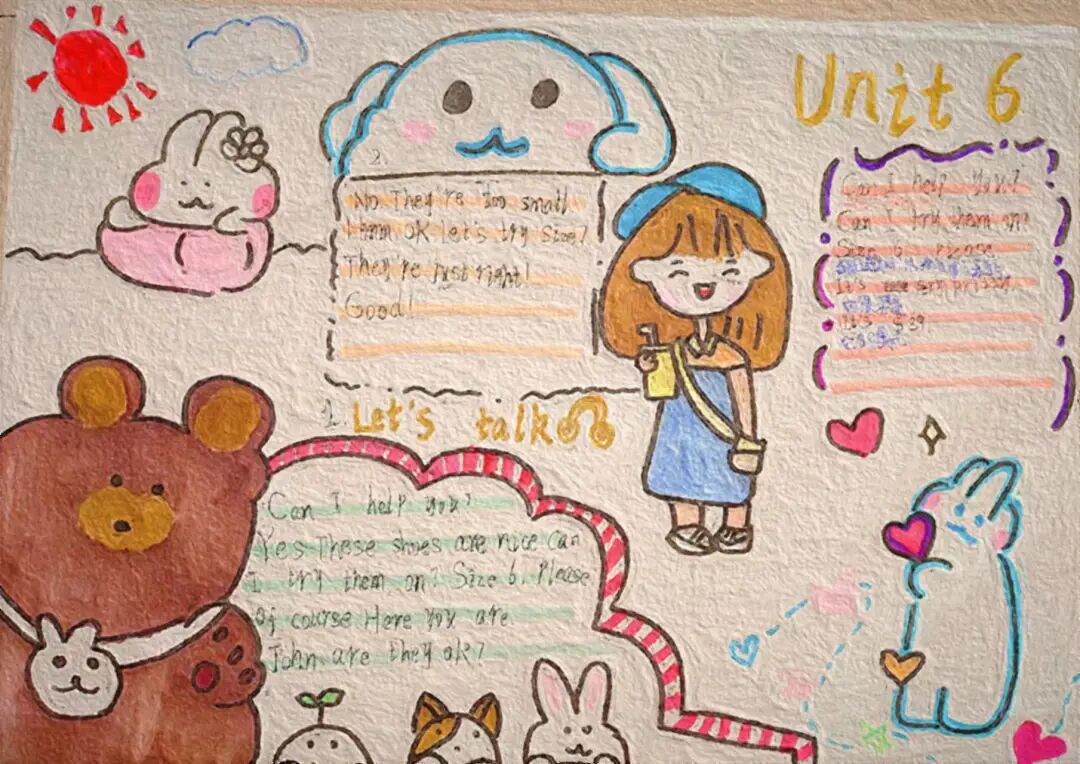 Unit 6
1. Let's talk
Can I help you?
Yes These shoes are nice can
I try them on? Size 6. Please
Of course Here you are
John are they ok?
2.
No They're too small
Hmm ok Let's try size7
They're just right!
Good!
Can I help you?
Can I try them on?
Size 6 please
It's
It's $39